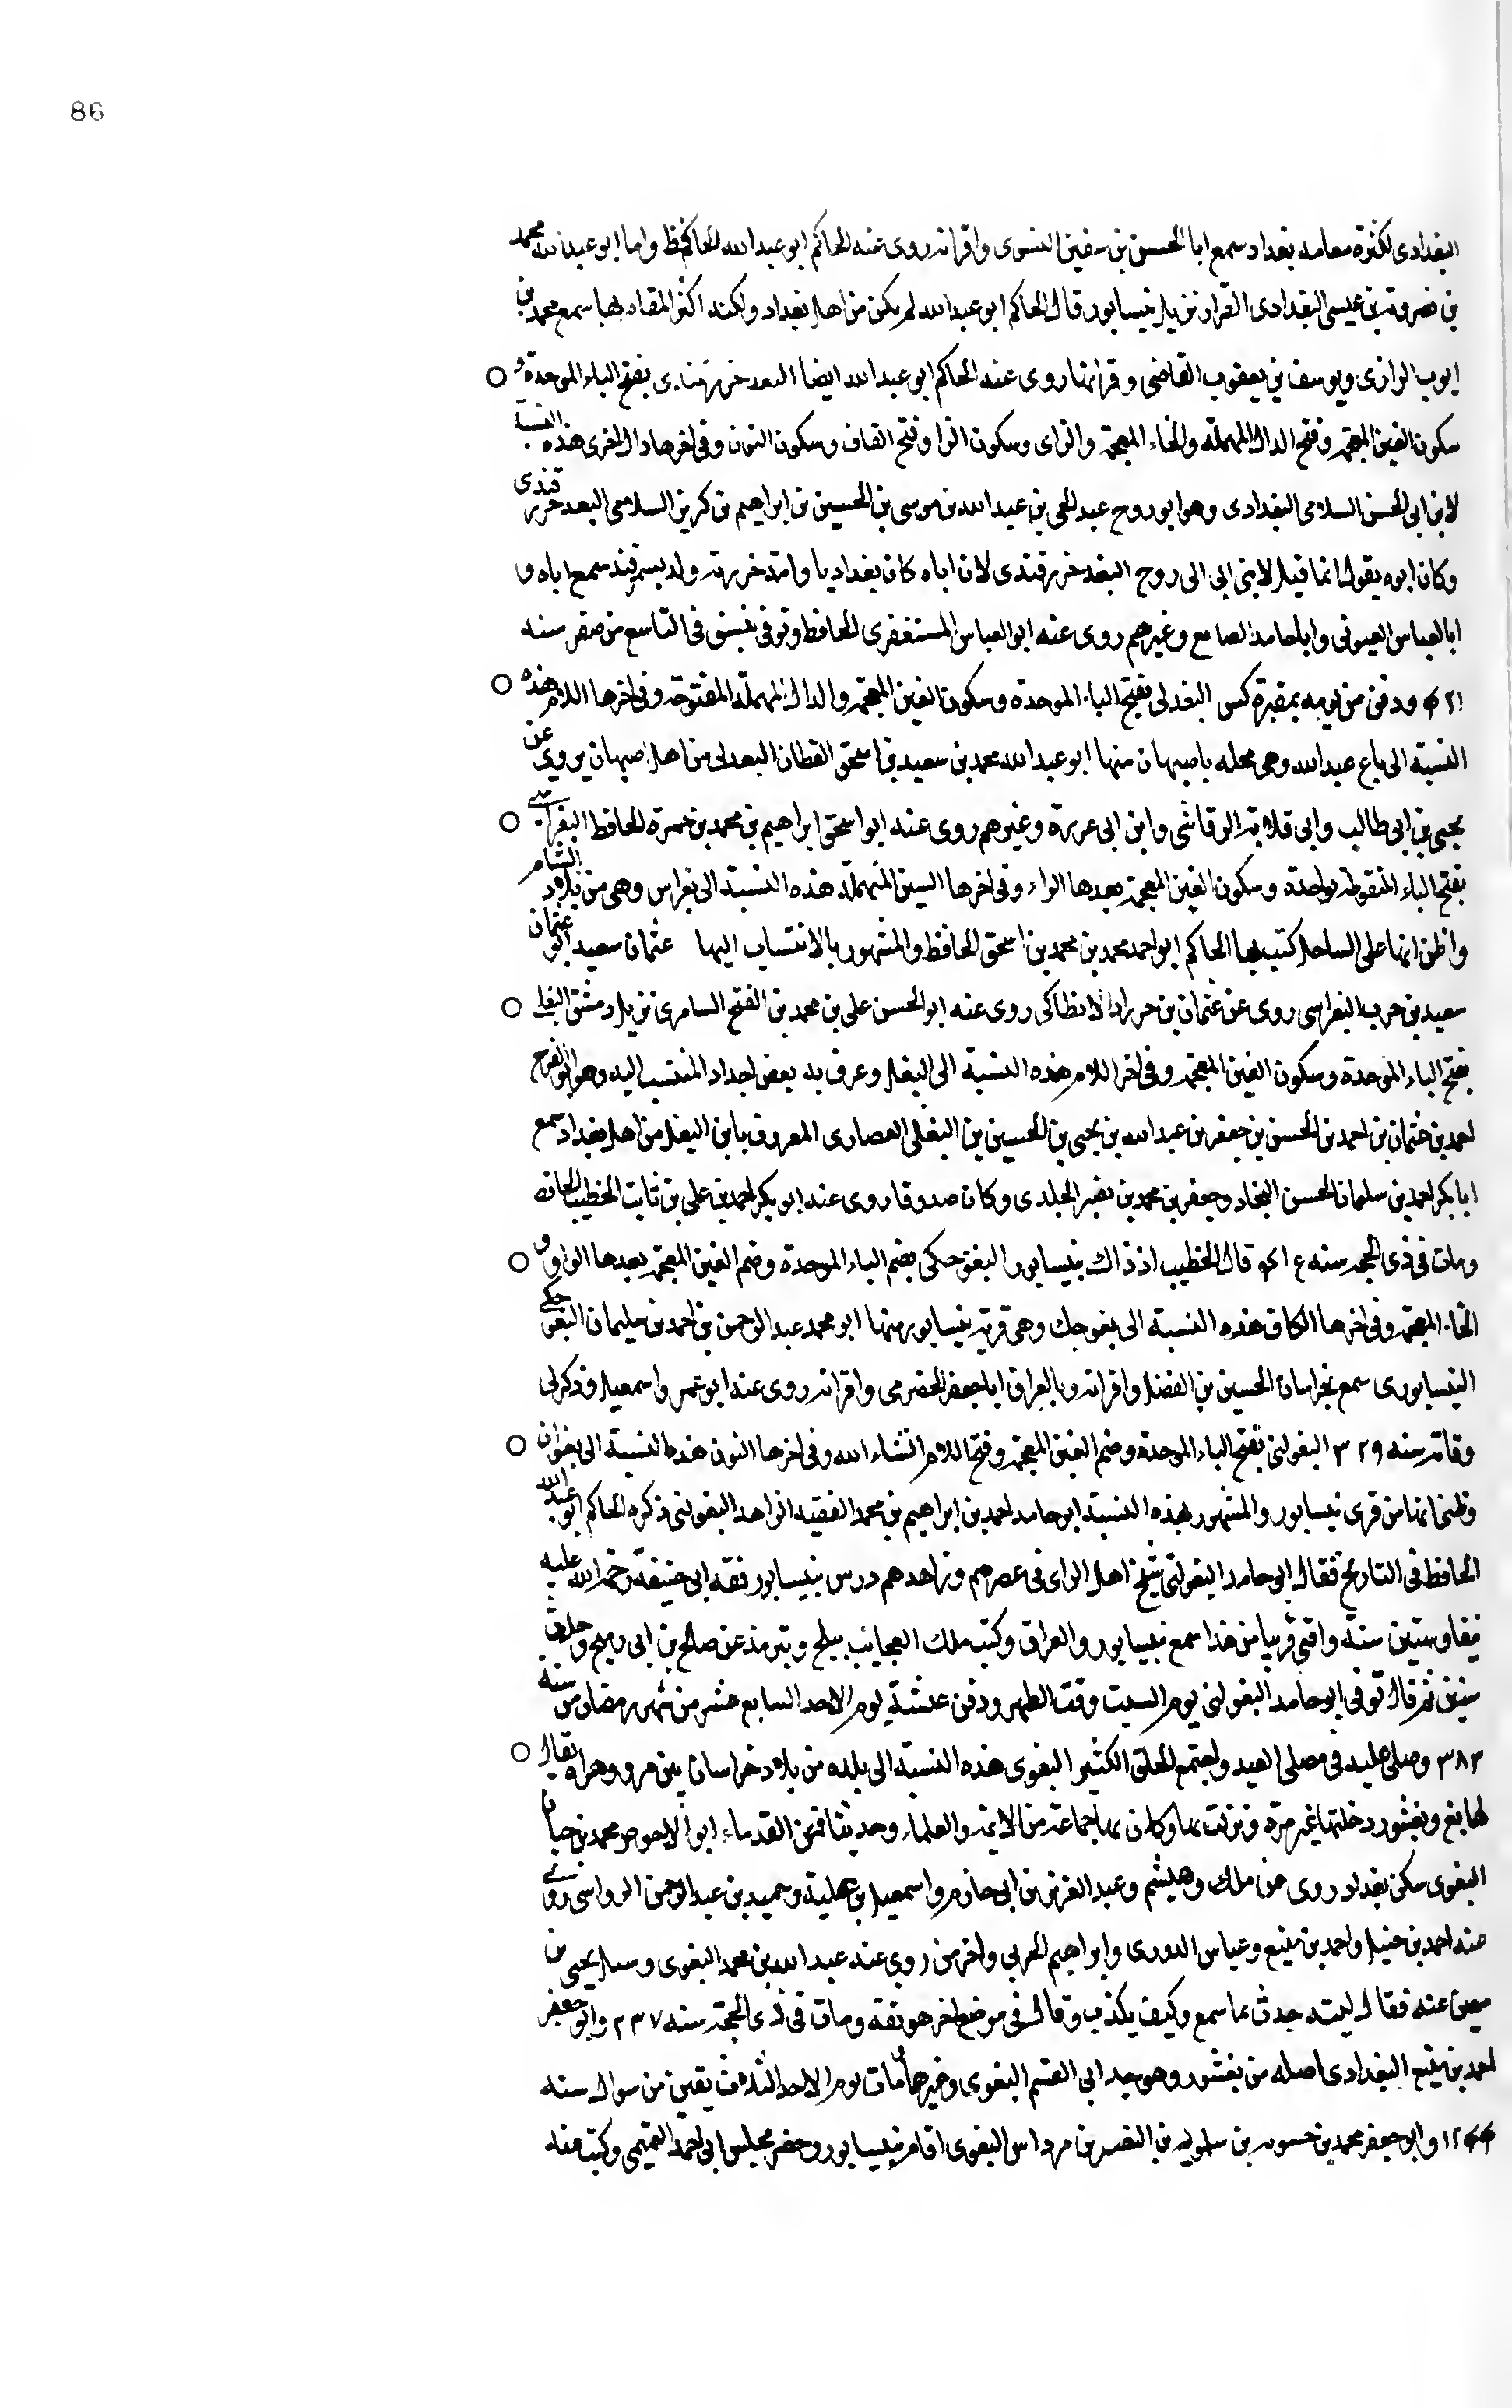 86
البغدادى لكثرة مقامه ببغداد سمع ابا الحسن بن سفين النسوى واقرانه روى عنه الحاكم ابو عبد الله الحافظ واما ابو عبد الله محمد
بن عيسى البغدادى القزاز نزيل نيسابور قال الحاكم ابو عبد الله لم يكن من اهل بغداد ولكنه اكثر المقام بها سمع محمد بن
ايوب الرازى ويوسف بن يعقوب القاضى واقرانهما روى عنه الحاكم ابو عبد الله ايضا البغدخزرقندى بفتح الباء الموحدة و
سكون الغين المعجمة وفتح الدال المهملة والخاء المعجمة والزاى وسكون الرا وفتح القاف وسكون النون وفى اخرها دال اخرى هذه النسبة
لابن ابى الحسن السلامى البغدادى وهو ابو روح عبد الحى بن عبد الله بن موسى بن الحسين بن ابراهيم بن كريز السلامى البغدخزرقندى
وكان ابوه يقول انما قيل لابنى ابى روح البغدخزرقندى لان اباه كان بغداديا وامه خزرية ولد بسمرقند سمع اباه و
ابا العباس العيونى وابا حامد الصايغ وغيرهم روى عنه ابو العباس المستغفرى الحافظ وتوفى بنسف فى التاسع من صفر سنه
۴۲۱ ودفن من يومه بمقبرة كس البغدلى بفتح الباء الموحدة وسكون الغين المعجمة والدال المهملة المفتوحة وفى اخرها اللام هذه
النسبة الى باغ عبد الله وهى محله باصبهان منها ابو عبد الله محمد بن سعيد بن اسحق القطان البغدلى من اهل اصبهان يروى عن
يحيى بن ابى طالب وابى قلابة الرقاشى وابن ابى غرزة وغيرهم روى عنه ابو اسحق ابراهيم بن محمد بن حمزة الحافظ البغراسى
بفتح الباء المنقوطة بواحدة وسكون الغين المعجمة بعدها الراء وفى اخرها السين المهملة هذه النسبة الى بغراس وهى من بلاد الشام
واظن انها على الساحل كتب بها الحاكم ابو احمد محمد بن محمد بن اسحق الحافظ والمشهور بالانتساب اليها عثمان سعيد ابو عثمان
سعيد بن حرب البغراسى روى عن عثمان بن خرزاد الانطاكى روى عنه ابو الحسن على بن محمد بن الفتح السامرى نزيل دمشق البغلى
بفتح الباء الموحدة وسكون الغين المعجمة وفى اخر اللام هذه النسبة الى البغل وعرف به بعض اجداد المنتسب اليه وهو ابو الفرج
احمد بن عثمان بن احمد بن الحسن بن جعفر بن عبد الله بن يحيى بن الحسين بن البغلى العصارى المعروف بابن البغل من اهل بغداد سمع
ابا بكر احمد بن سلمان الحسن النجاد وجعفر بن محمد بن نصير الخلدى وكان صدوقا روى عنه ابو بكر احمد بن على بن ثابت الخطيب الحافظ
ومات فى ذى الحجة سنه ۴۱۵ قال الخطيب اذ ذاك بنيسابور البغوخكى بضم الباء الموحدة وضم الغين المعجمة بعدها الواو و
الخاء المعجمة وفى اخرها الكاف هذه النسبة الى بغوخك وهى قرية بنيسابور منها ابو محمد عبد الرحمن بن احمد بن سليمان البغوخكى
النيسابورى سمع بخراسان الحسين بن الفضل واقرانه وبالعراق ابا جعفر الحضرمى واقرانه روى عنه ابو عمرو اسمعيل وذكر لى
وفاته سنه ۳۲۹ البغولنى بفتح الباء الموحدة وضم الغين المعجمة وفتح اللام انشاء الله وفى اخرها النون هذه النسبة الى بغولن
وظنى انها من قرى نيسابور والمشهور بهذه النسبة ابو حامد احمد بن ابراهيم بن محمد الفقيه الزاهد البغولنى ذكره الحاكم ابو عبد الله
الحافظ فى التاريخ فقال ابو حامد البغولنى شيخ اهل الراى فى عصرهم وزاهدهم درس بنيسابور فقه ابى حنيفة رحمة الله عليه
نيفا وستين سنة وافتى قريبا من هذا سمع بنيسابور والعراق وكتب ببلخ وبترمذ عن صالح بن ابى رميح وحدث
سنين ثم قال توفى ابو حامد البغولنى يوم السبت وقت الظهر ودفن عشية يوم الاحد السابع عشر من شهر رمضان من سنة
۳۸۳ وصلى عليه فى مصلى العيد واجتمع الخلق الكثير البغوى هذه النسبة الى بلده من بلاد خراسان بين مرو وهراه يقال
لها بغ وبغشور دخلتها غير مرة ونزلت بها وكان بها جماعة من الائمة والعلماء وحديثا فمن القدماء ابو الاحوص محمد بن حيان
البغوى سكن بغداد روى عن ملك وهشيم وعبد العزيز بن ابى حازم واسمعيل بن علية وحميد بن عبد الرحمن الرواسى روى
عنه احمد بن حنبل واحمد بن منيع وعباس الدورى وابراهيم الحربى واخر من روى عنه عبد الله بن محمد البغوى وسئل يحيى بن
معين عنه فقال ليته حدث بما سمع وكيف يكذب وقال فى موضع اخر هو ثقه ومات فى ذى الحجة سنه ۲۳۷ وابو جعفر
احمد بن منيع البغدادى اصله من بغشور وهو جد ابى القسم البغوى وغيرهما مات يوم الاحد لثلاث بقين من شوال سنه
۲۴۴ وابو جعفر محمد بن حسويه بن سلمويه بن النضر بن مرداس البغوى اقام بنيسابور وحضر مجلس ابى احمد التميمى وكتب عنه